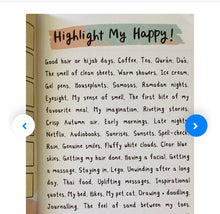 Highlight My Happy!
Good hair or hijab days, Coffee, Tea, Qur'an, Du'a,
The smell of clean sheets, Warm showers, Ice cream,
Gel pens, Houseplants, Samosas, Ramadan nights,
Eyesight, My sense of smell, The first bite of my
favourite meal, My imagination, Riveting stories,
Crisp Autumn air, Early mornings, Late nights,
Netflix, Audiobooks, Sunrises, Sunsets, Spell-check,
Rain, Genuine smiles, Fluffy white clouds, Clear blue
skies, Getting my hair done, Having a facial, Getting
a massage, Staying in, Lego, Unwinding after a long
day, Thai food, Uplifting messages, Inspirational
quotes, My bed, Hikes, My pet cat, Drawing + doodling,
Journaling, The feel of sand between my toes,